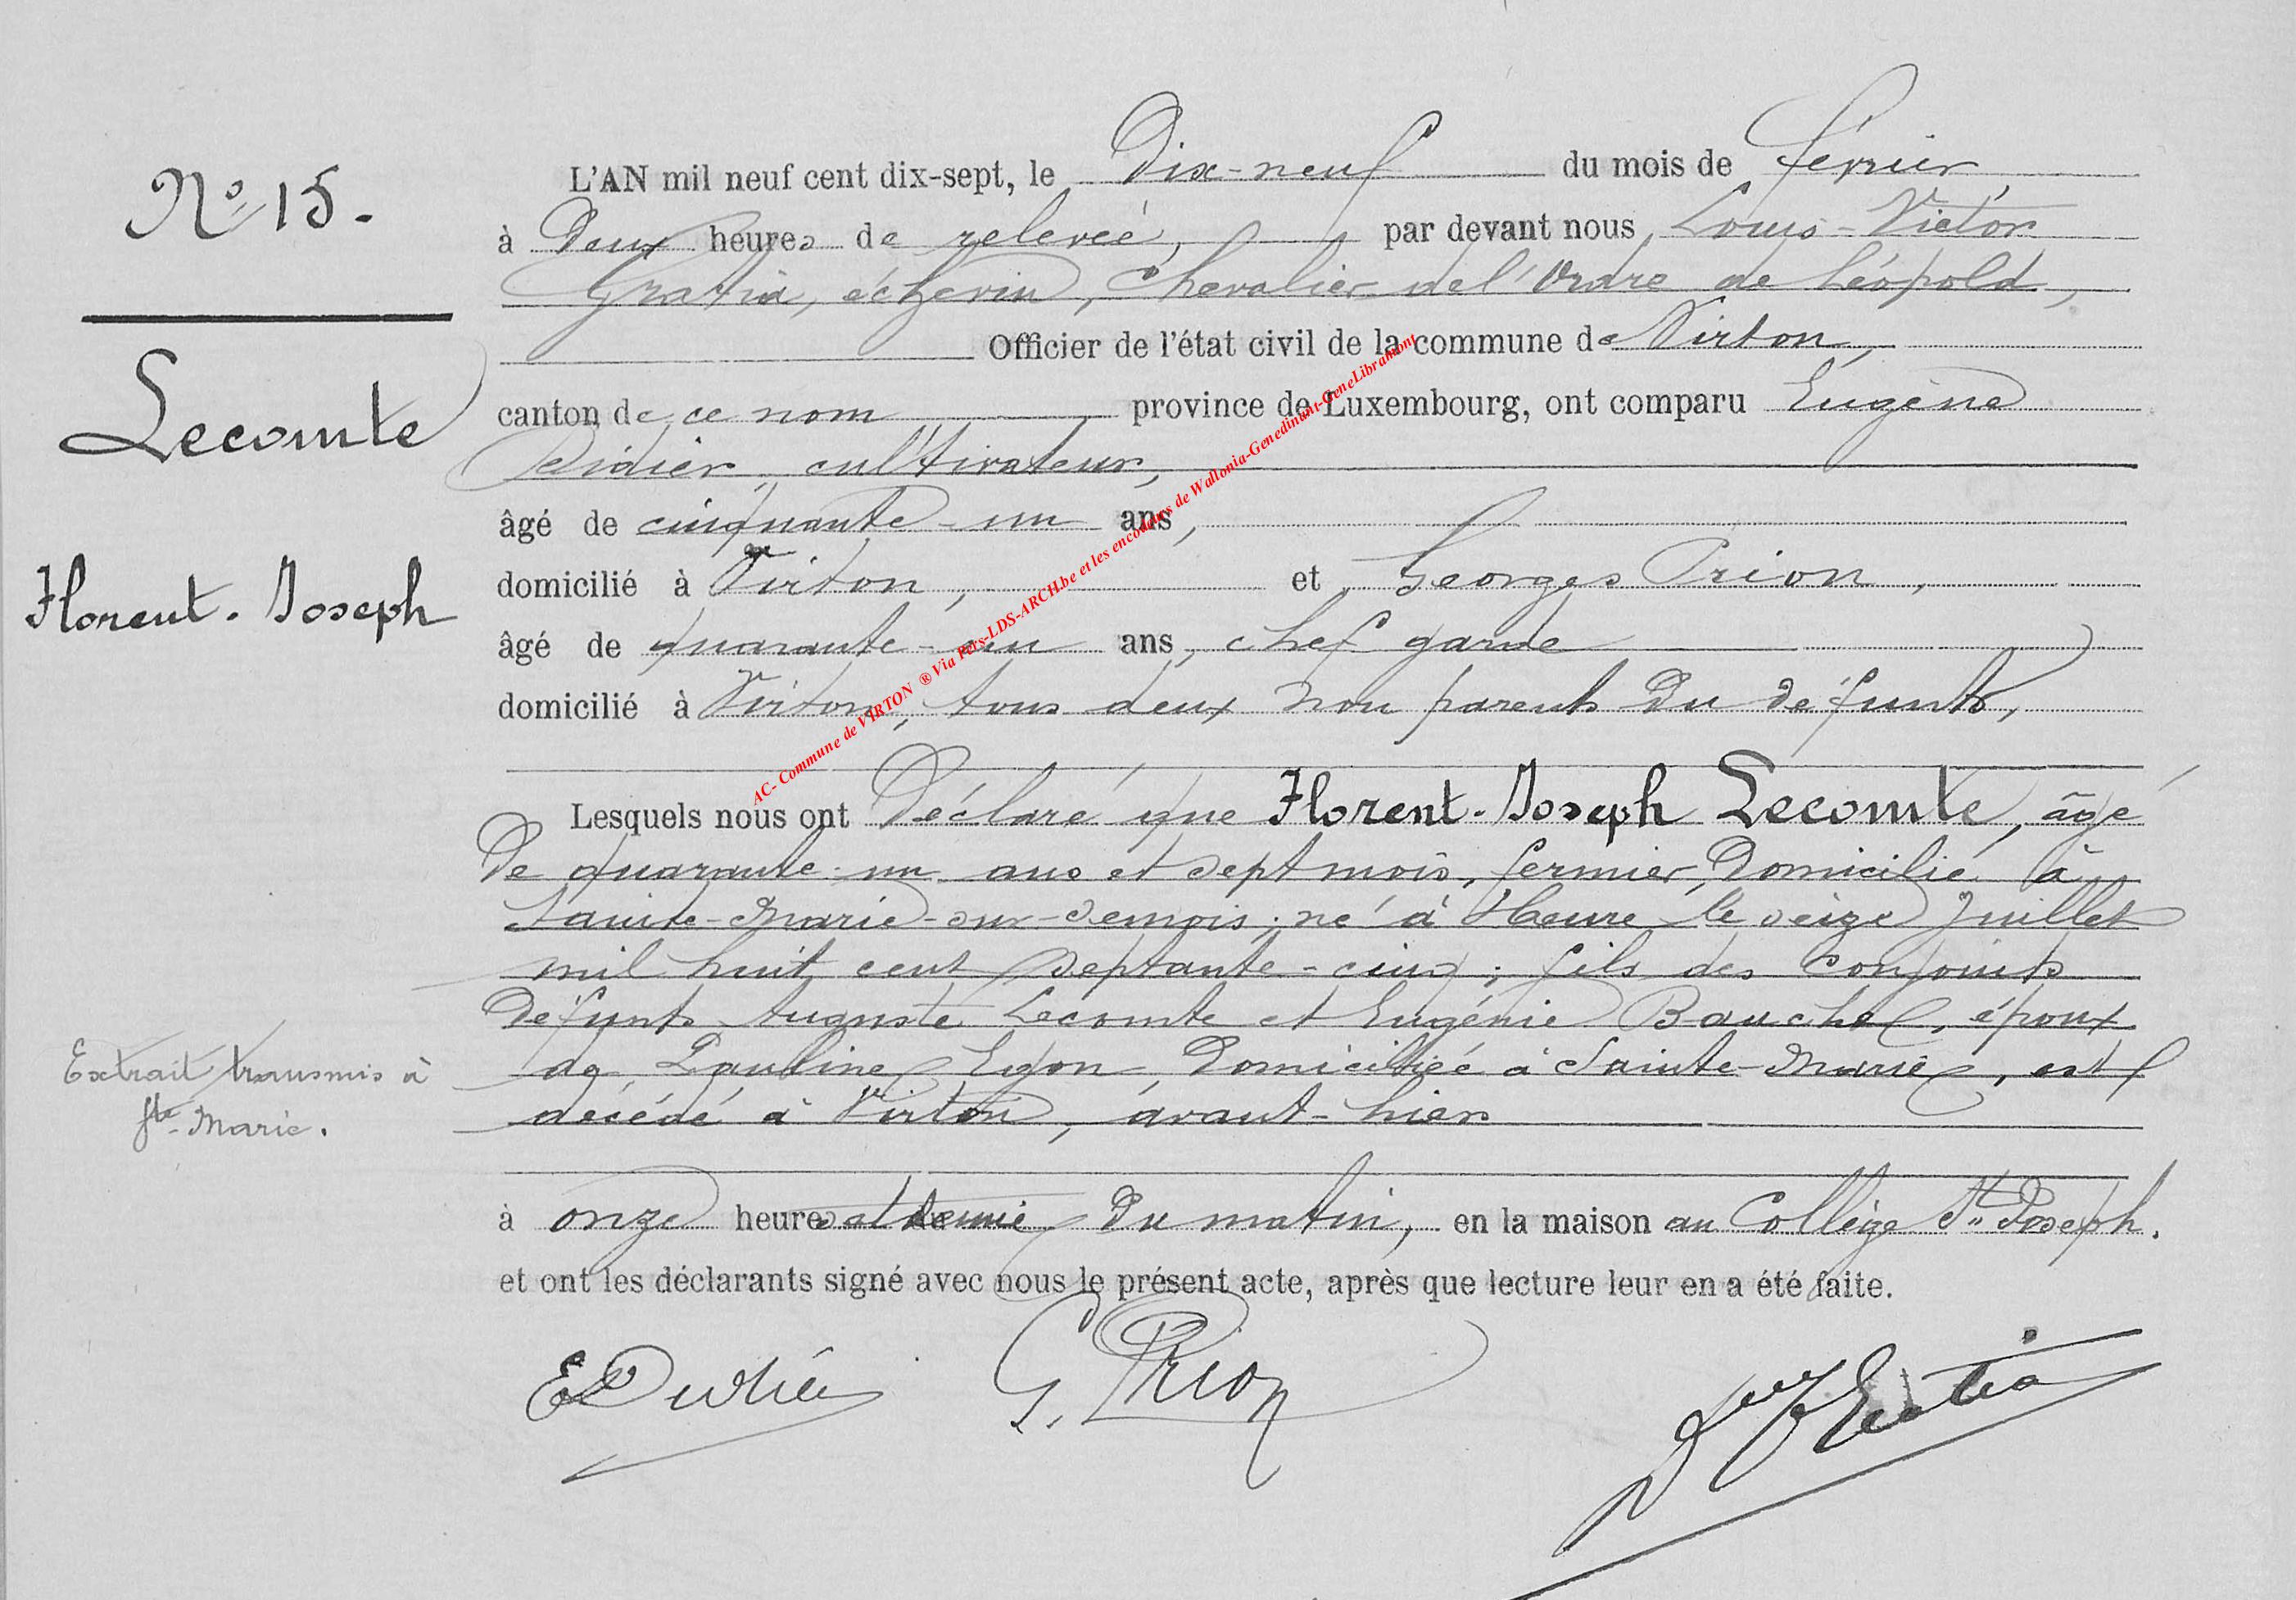 N° 15.
Lecomte
Florent-Joseph
Extrait transmis à
Ste-Marie.
L'AN mil neuf cent dix-sept, le Dix-neuf du mois de février,
à Deux heures de relevée, par devant nous Louis-Victor
Gratia, échevin, Chevalier de l'Ordre de Léopold,
Officier de l'état civil de la commune de Virton,
canton de ce nom province de Luxembourg, ont comparu Eugène
Didier, cultivateur,
âgé de cinquante-un ans,
domicilié à Virton, et Georges Prion,
âgé de quarante-un ans, chef garde
domicilié à Virton, tous deux non parents du défunt,
Lesquels nous ont Déclaré que Florent-Joseph Lecomte, âgé
De quarante-un ans et sept mois, fermier, Domicilié à
Sainte-Marie-sur-Semois; né à Heure le seize Juillet
mil huit cent septante-cinq; fils des conjoints
défunts Auguste Lecomte et Eugénie Bauchel, époux
de Pauline Lyon, Domiciliée à Sainte-Marie, est
décédé à Virton, avant-hier
à onze heures et demie du matin, en la maison au Collège St Joseph.
et ont les déclarants signé avec nous le présent acte, après que lecture leur en a été faite.
E Didier G. Prion L V Gratia
AC- Commune de VIRTON ® Via Pers-LDS-ARCH.be et les encodeurs de Wallonia-Genedinant-GeneLibramont